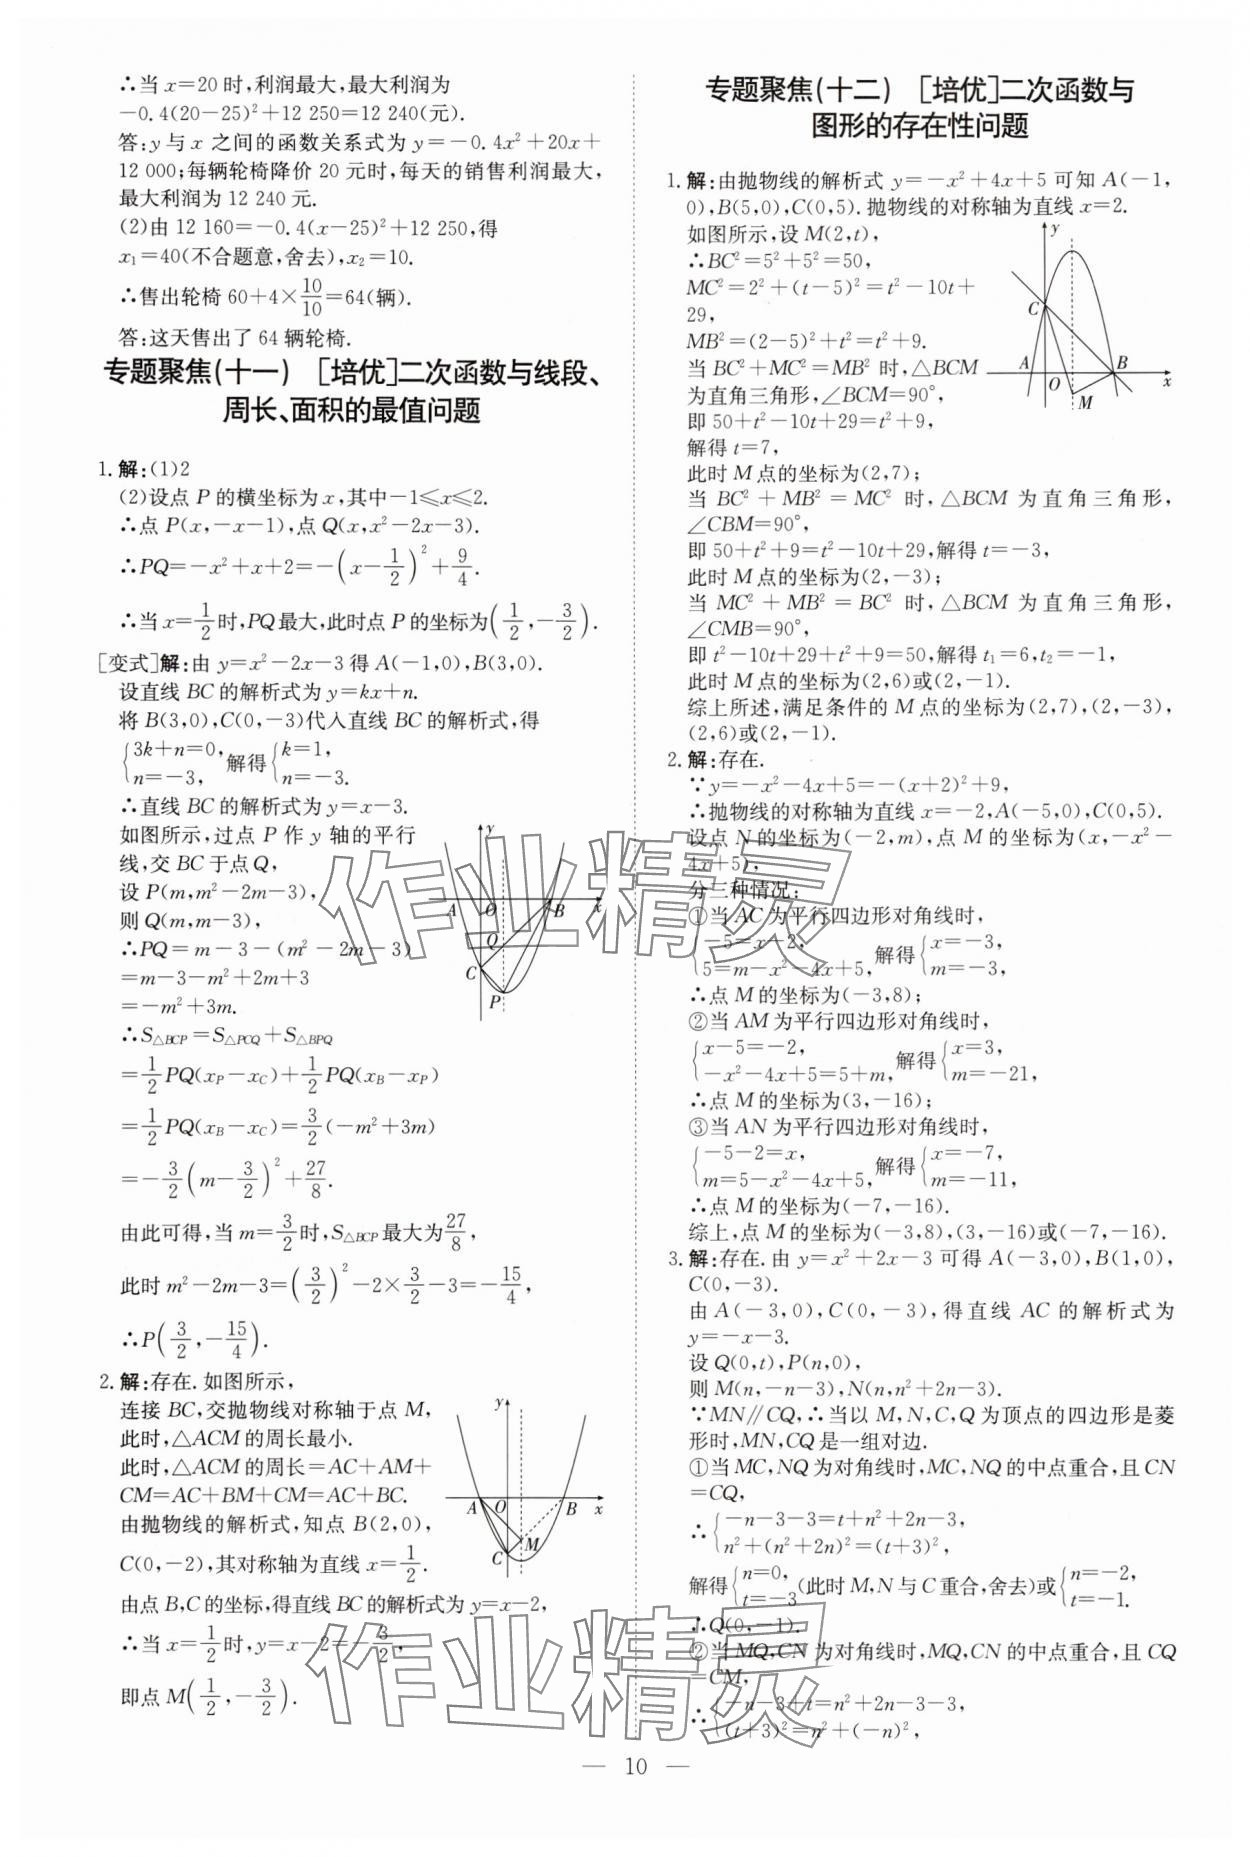 ∴当 x=20 时,利润最大,最大利润为
-0.4(20-25)²+12 250=12 240(元).
答:y 与 x 之间的函数关系式为 y=-0.4x²+20x+
12 000;每辆轮椅降价 20 元时,每天的销售利润最大,
最大利润为 12 240 元.
(2)由 12 160=-0.4(x-25)²+12 250,得
x₁=40(不合题意,舍去),x₂=10.
∴售出轮椅 60+4×10/10=64(辆).
答:这天售出了 64 辆轮椅.
专题聚焦(十一) [培优]二次函数与线段、
周长、面积的最值问题
1.解:(1)2
(2)设点 P 的横坐标为 x,其中-1≤x≤2.
∴点 P(x,-x-1),点 Q(x,x²-2x-3).
∴PQ=-x²+x+2=-(x-1/2)²+9/4.
∴当 x=1/2时,PQ最大,此时点 P 的坐标为(1/2,-3/2).
[变式]解:由 y=x²-2x-3 得 A(-1,0),B(3,0).
设直线 BC 的解析式为 y=kx+n.
将 B(3,0),C(0,-3)代入直线 BC 的解析式,得
{3k+n=0, n=-3, 解得{k=1, n=-3.
∴直线 BC 的解析式为 y=x-3.
如图所示,过点 P 作 y 轴的平行
线,交 BC 于点Q,
设 P(m,m²-2m-3),
则 Q(m,m-3),
∴PQ=m-3-(m²-2m-3)
=m-3-m²+2m+3
=-m²+3m.
∴S△BCP=S△PCQ+S△BPQ
=1/2PQ(xP-xC)+1/2PQ(xB-xP)
=1/2PQ(xB-xC)=3/2(-m²+3m)
=-3/2(m-3/2)²+27/8.
由此可得,当 m=3/2时,S△BCP最大为27/8,
此时 m²-2m-3=(3/2)²-2×3/2-3=-15/4,
∴P(3/2,-15/4).
y
A O B x
Q
C
P
2.解:存在.如图所示,
连接 BC,交抛物线对称轴于点 M,
此时,△ACM 的周长最小.
此时,△ACM 的周长=AC+AM+
CM=AC+BM+CM=AC+BC.
由抛物线的解析式,知点 B(2,0),
C(0,-2),其对称轴为直线 x=1/2.
由点 B,C 的坐标,得直线 BC 的解析式为 y=x-2,
∴当 x=1/2时,y=x-2=-3/2,
即点 M(1/2,-3/2).
y
A O B x
M
C
专题聚焦(十二) [培优]二次函数与
图形的存在性问题
1.解:由抛物线的解析式 y=-x²+4x+5 可知 A(-1,
0),B(5,0),C(0,5).抛物线的对称轴为直线 x=2.
如图所示,设 M(2,t),
∴BC²=5²+5²=50,
MC²=2²+(t-5)²=t²-10t+
29,
MB²=(2-5)²+t²=t²+9.
当 BC²+MC²=MB² 时,△BCM
为直角三角形,∠BCM=90°,
即 50+t²-10t+29=t²+9,
解得 t=7,
此时 M 点的坐标为(2,7);
当 BC²+MB²=MC² 时,△BCM 为直角三角形,
∠CBM=90°,
即 50+t²+9=t²-10t+29,解得 t=-3,
此时 M 点的坐标为(2,-3);
当 MC²+MB²=BC² 时,△BCM 为直角三角形,
∠CMB=90°,
即 t²-10t+29+t²+9=50,解得 t₁=6,t₂=-1,
此时 M 点的坐标为(2,6)或(2,-1).
综上所述,满足条件的 M 点的坐标为(2,7),(2,-3),
(2,6)或(2,-1).
y
C
A O B x
M
2.解:存在.
∵y=-x²-4x+5=-(x+2)²+9,
∴抛物线的对称轴为直线 x=-2,A(-5,0),C(0,5).
设点 N 的坐标为(-2,m),点 M 的坐标为(x,-x²-
4x+5),
分三种情况:
①当 AC 为平行四边形对角线时,
{-5=x-2, 5=m-x²-4x+5, 解得{x=-3, m=-3,
∴点 M 的坐标为(-3,8);
②当 AM 为平行四边形对角线时,
{x-5=-2, -x²-4x+5=5+m, 解得{x=3, m=-21,
∴点 M 的坐标为(3,-16);
③当 AN 为平行四边形对角线时,
{-5-2=x, m=5-x²-4x+5, 解得{x=-7, m=-11,
∴点 M 的坐标为(-7,-16).
综上,点 M 的坐标为(-3,8),(3,-16)或(-7,-16).
3.解:存在.由 y=x²+2x-3 可得 A(-3,0),B(1,0),
C(0,-3).
由 A(-3,0),C(0,-3),得直线 AC 的解析式为
y=-x-3.
设 Q(0,t),P(n,0),
则 M(n,-n-3),N(n,n²+2n-3).
∵MN∥CQ,∴当以 M,N,C,Q 为顶点的四边形是菱
形时,MN,CQ 是一组对边.
①当 MC,NQ 为对角线时,MC,NQ 的中点重合,且 CN
=CQ,
∴{-n-3-3=t+n²+2n-3, n²+(n²+2n)²=(t+3)²,
解得{n=0, t=-3(此时 M,N 与 C 重合,舍去)或{n=-2, t=-1.
∴Q(0,-1).
②当 MQ,CN 为对角线时,MQ,CN 的中点重合,且 CQ
=CM,
∴{-n-3+t=n²+2n-3-3, (t+3)²=n²+(-n)²,
作业精灵
作业精灵
— 10 —